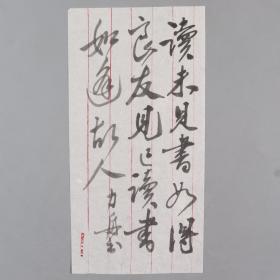 讀未見書如得
良友見已讀書
如逢故人